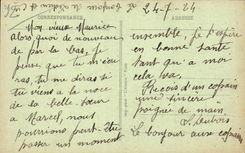 24-7-24
CORRESPONDANCE
ADRESSE
Mon vieux Maurice
Alors quoi de nouveau
par la bas, je
pense que tu m'en
tu me diras si
tu viens a la noce
de la belle-sœur
a Marcel, nous
pourrions peut être
passer un moment
ensemble, je t'espère
en bonne santé
tant qu'a moi
cela va.
Reçois d'un copain
une sincère
poignée de main
le bonjour aux copains